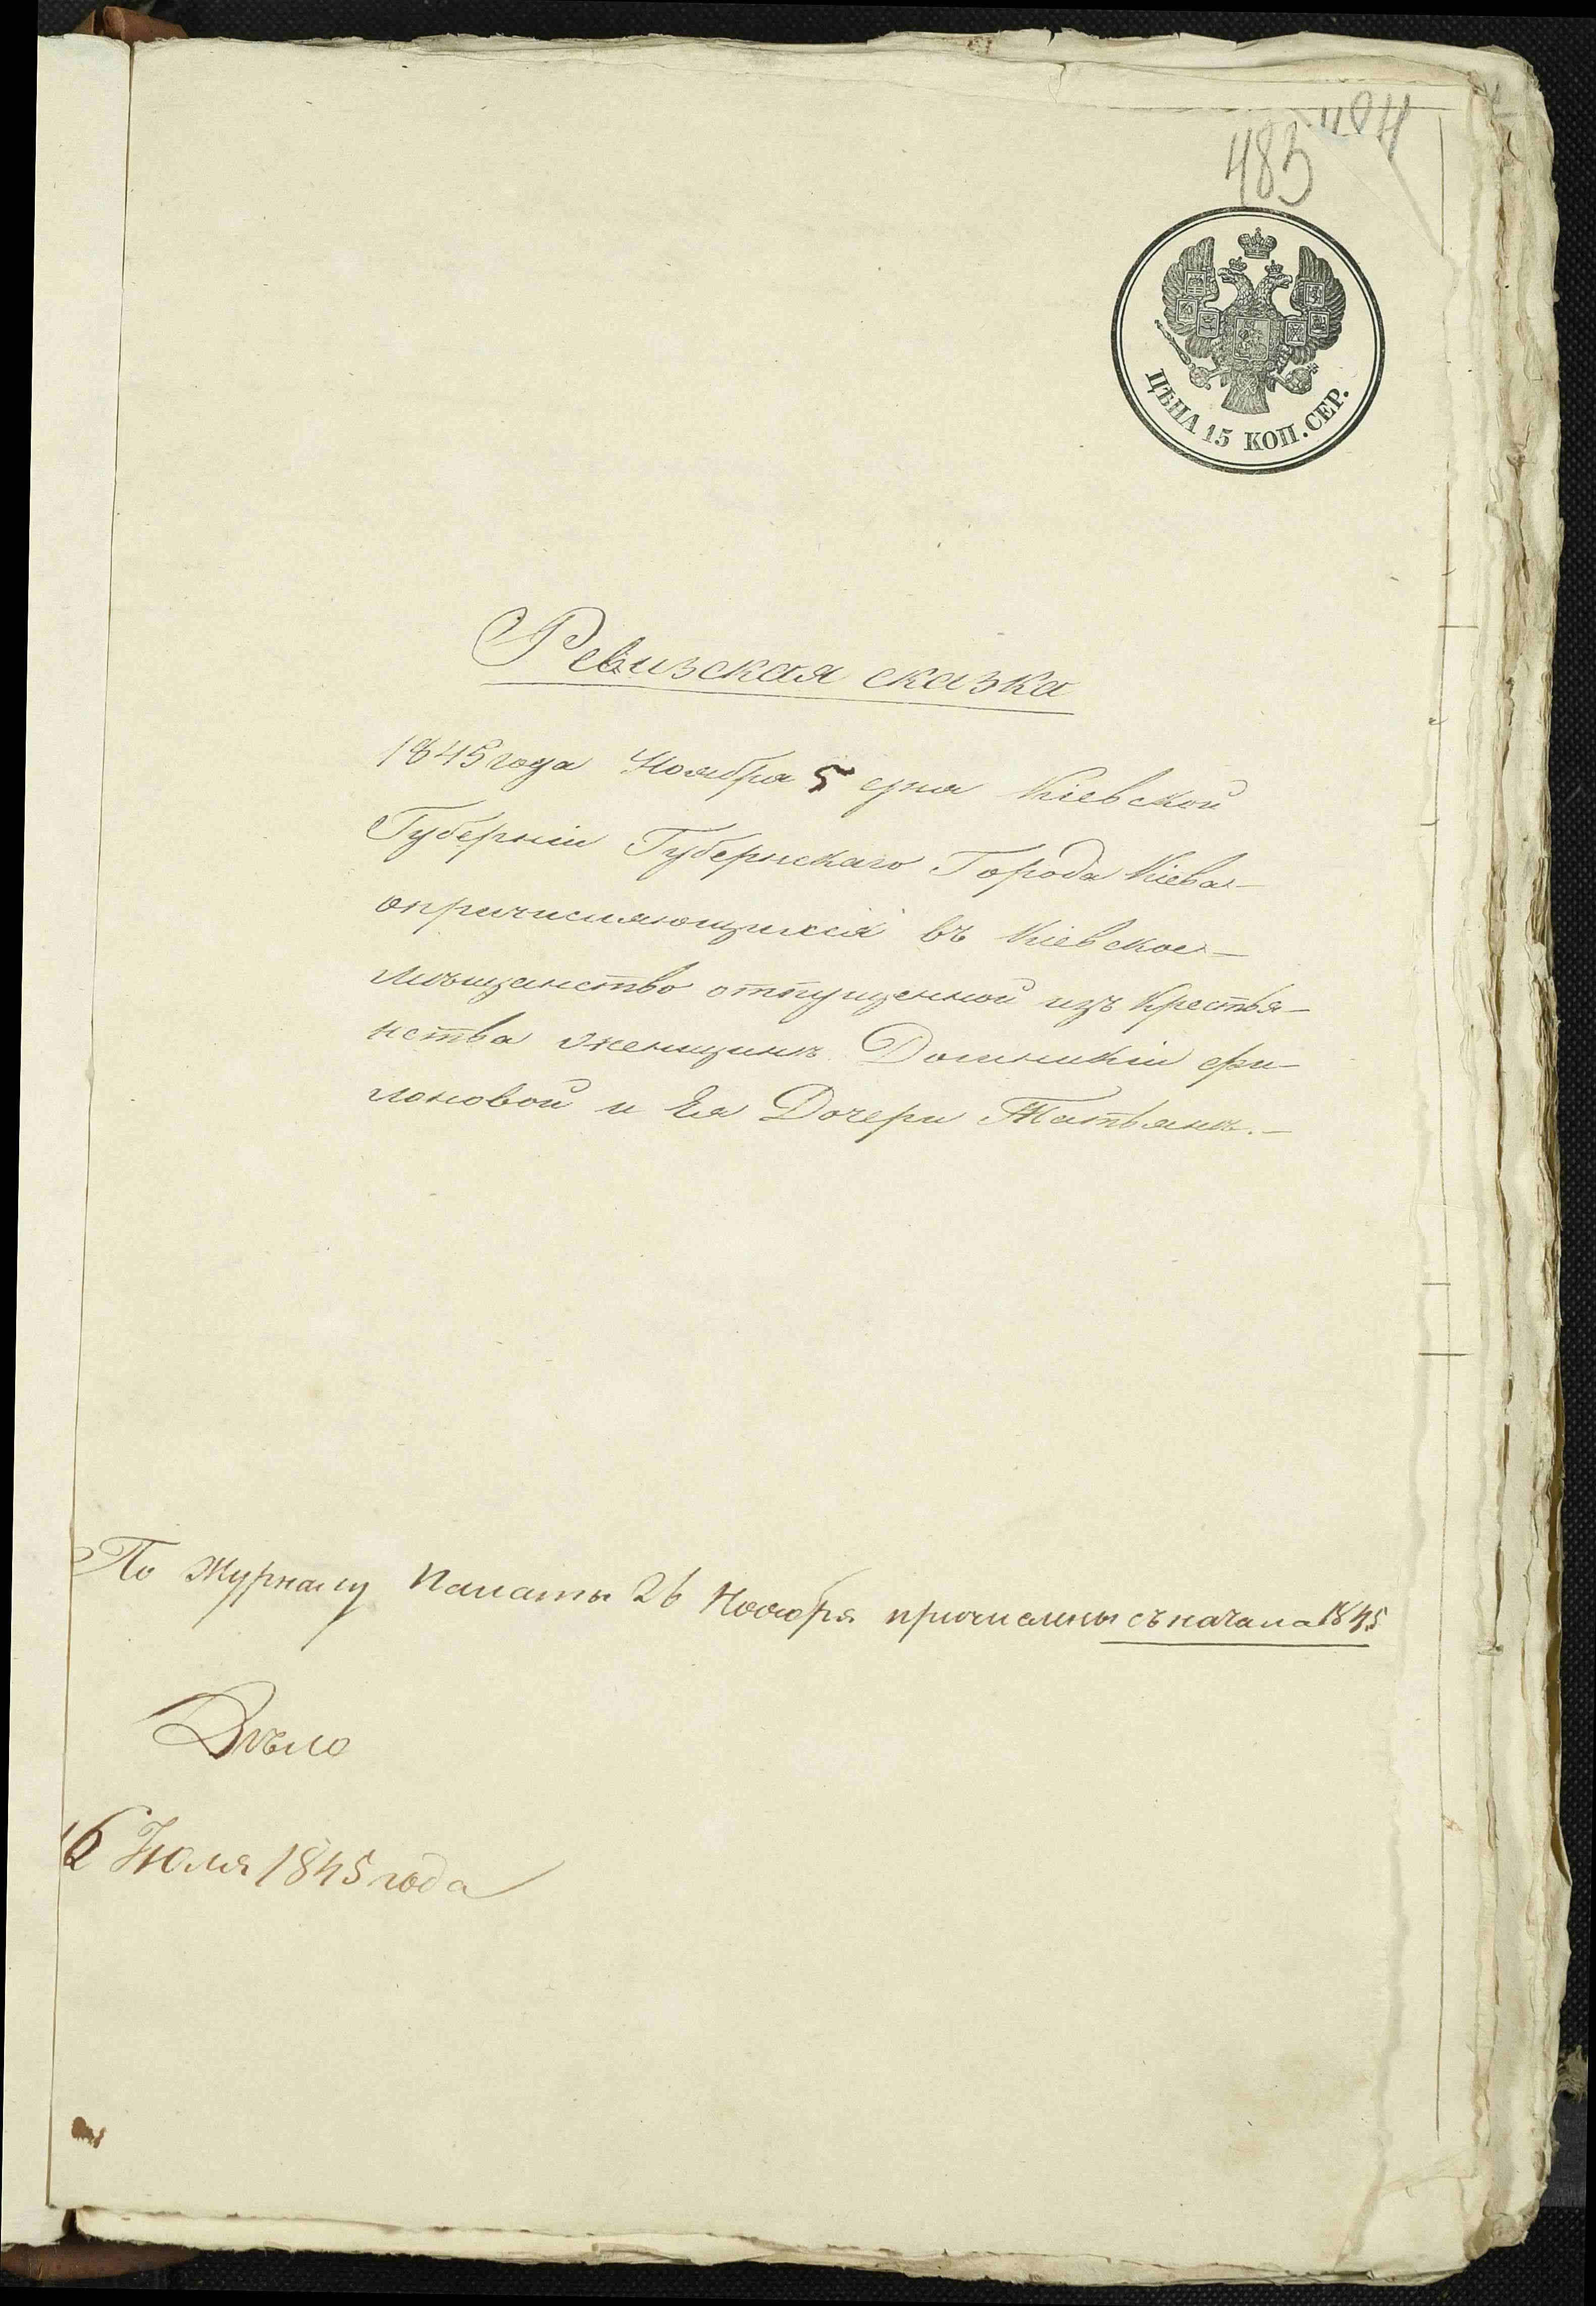 404
483
ЦѢНА 15 КОП. СЕР.
Ревизская сказка
1845 года Ноября 5 дня Кіевской
Губерніи Губернскаго Города Кіева
опричисляющихся въ Кіевское
мѣщанство отпущенной изъ Крестья-
нства женщинѣ Домникіи Фи-
лоновой и Ея Дочери Татьянѣ.
По Журналу Палаты 26 Ноября причислены съ начала 1845
Дѣло
16 Июля 1845 года